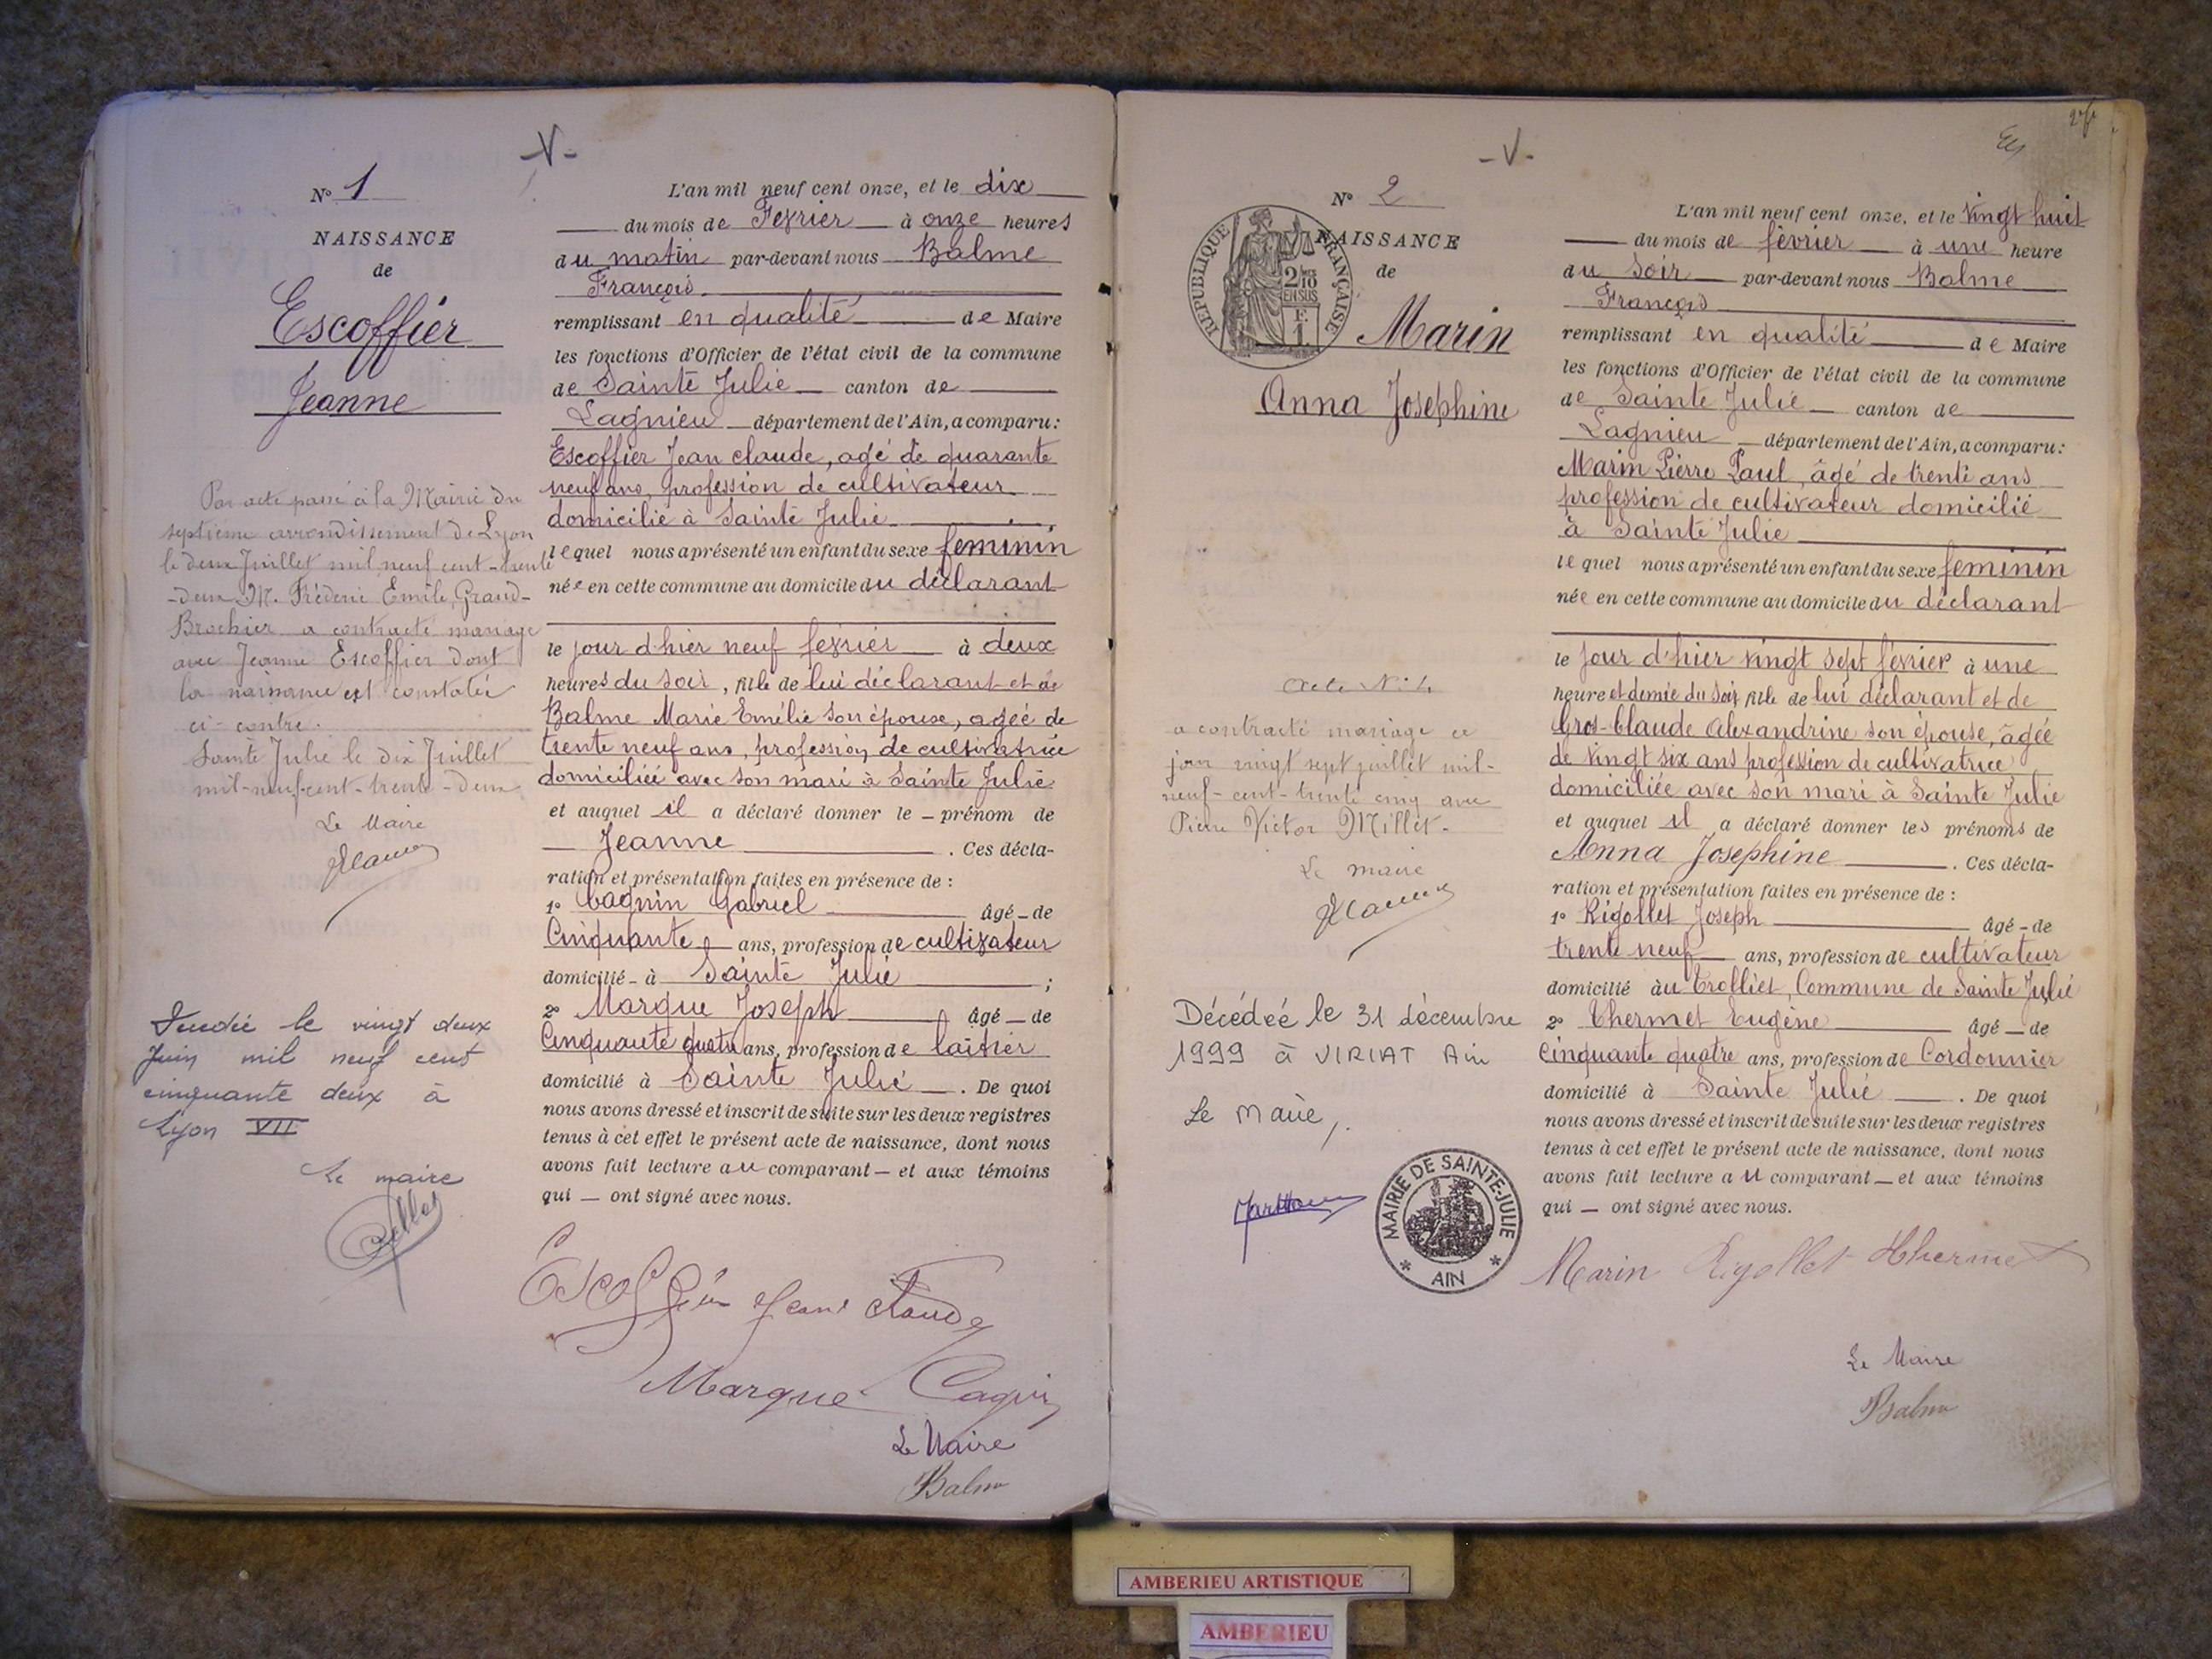 -V-
N° 1
NAISSANCE
de
Escoffier
Jeanne
Par acte passé à la Mairie du
septième arrondissement de Lyon
le deux Juillet mil neuf cent-trente
-deux M. Fréderic Emile, Grand-
Brochier a contracté mariage
avec Jeanne Escoffier dont
la naissance est constatée
ci-contre.
Sainte Julie le dix Juillet
mil-neuf-cent-trente-deux
Le Maire
le vingt deux
Juin mil neuf cent
cinquante deux à
Lyon VII
Le maire
L'an mil neuf cent onze, et le dix
du mois de Fevrier à onze heures
du matin par-devant nous Balme
François
remplissant en qualité de Maire
les fonctions d'Officier de l'état civil de la commune
de Sainte Julie canton de
Lagnieu département de l'Ain, a comparu:
Escoffier Jean claude, agé de quarante
neuf ans, profession de cultivateur
domicilié à Sainte Julie
lequel nous a présenté un enfant du sexe feminin
née en cette commune au domicile du déclarant
le jour d'hier neuf fevrier à deux
heures du soir, fille de lui déclarant et de
Balme Marie Emélie son épouse, agée de
trente neuf ans, profession de cultivatrice
domiciliée avec son mari à Sainte Julie
et auquel il a déclaré donner le – prénom de
Jeanne . Ces décla-
ration et présentation faites en présence de :
1° Cagnin Gabriel âgé – de
Cinquante ans, profession de cultivateur
domicilié - à Sainte Julie ;
2° Marque Joseph âgé – de
Cinquante quatre ans, profession de laitier
domicilié à Sainte Julie . De quoi
nous avons dressé et inscrit de suite sur les deux registres
tenus à cet effet le présent acte de naissance, dont nous
avons fait lecture au comparant – et aux témoins
qui – ont signé avec nous.
Escoffier Jean Claude
Marque Cagnin
Le Maire
Balme
-V-
N° 2
REPUBLIQUE FRANÇAISE
2/10 EN SUS
F. 1
NAISSANCE
de
Marin
Anna Josephine
Acte N: 4
a contracté mariage ce
jour vingt sept juillet mil-
neuf-cent-trente cinq avec
Pierre Victor Millet-
Le maire
Décédée le 31 décembre
1999 à VIRIAT Ain
Le Maire,
MAIRIE DE SAINTE-JULIE
* AIN *
L'an mil neuf cent onze, et le vingt huit
du mois de février à une heure
du soir par-devant nous Balme
François
remplissant en qualité de Maire
les fonctions d'Officier de l'état civil de la commune
de Sainte Julie canton de
Lagnieu département de l'Ain, a comparu:
Marin Pierre Paul, âgé de trente ans
profession de cultivateur domicilié
à Sainte Julie
lequel nous a présenté un enfant du sexe feminin
née en cette commune au domicile du déclarant
le jour d'hier vingt sept février à une
heure et demie du soir fille de lui déclarant et de
Gros-Claude Alexandrine son épouse, âgée
de vingt six ans profession de cultivatrice
domiciliée avec son mari à Sainte Julie
et auquel il a déclaré donner les prénoms de
Anna Josephine . Ces décla-
ration et présentation faites en présence de :
1° Rigollet Joseph âgé - de
trente neuf ans, profession de cultivateur
domicilié au Trolliet, Commune de Sainte Julie
2° Thermet Eugène âgé – de
Cinquante quatre ans, profession de Cordonnier
domicilié à Sainte Julie . De quoi
nous avons dressé et inscrit de suite sur les deux registres
tenus à cet effet le présent acte de naissance, dont nous
avons fait lecture au comparant – et aux témoins
qui – ont signé avec nous.
Marin Rigollet Thermet
Le Maire
Balme
AMBERIEU ARTISTIQUE
AMBERIEU